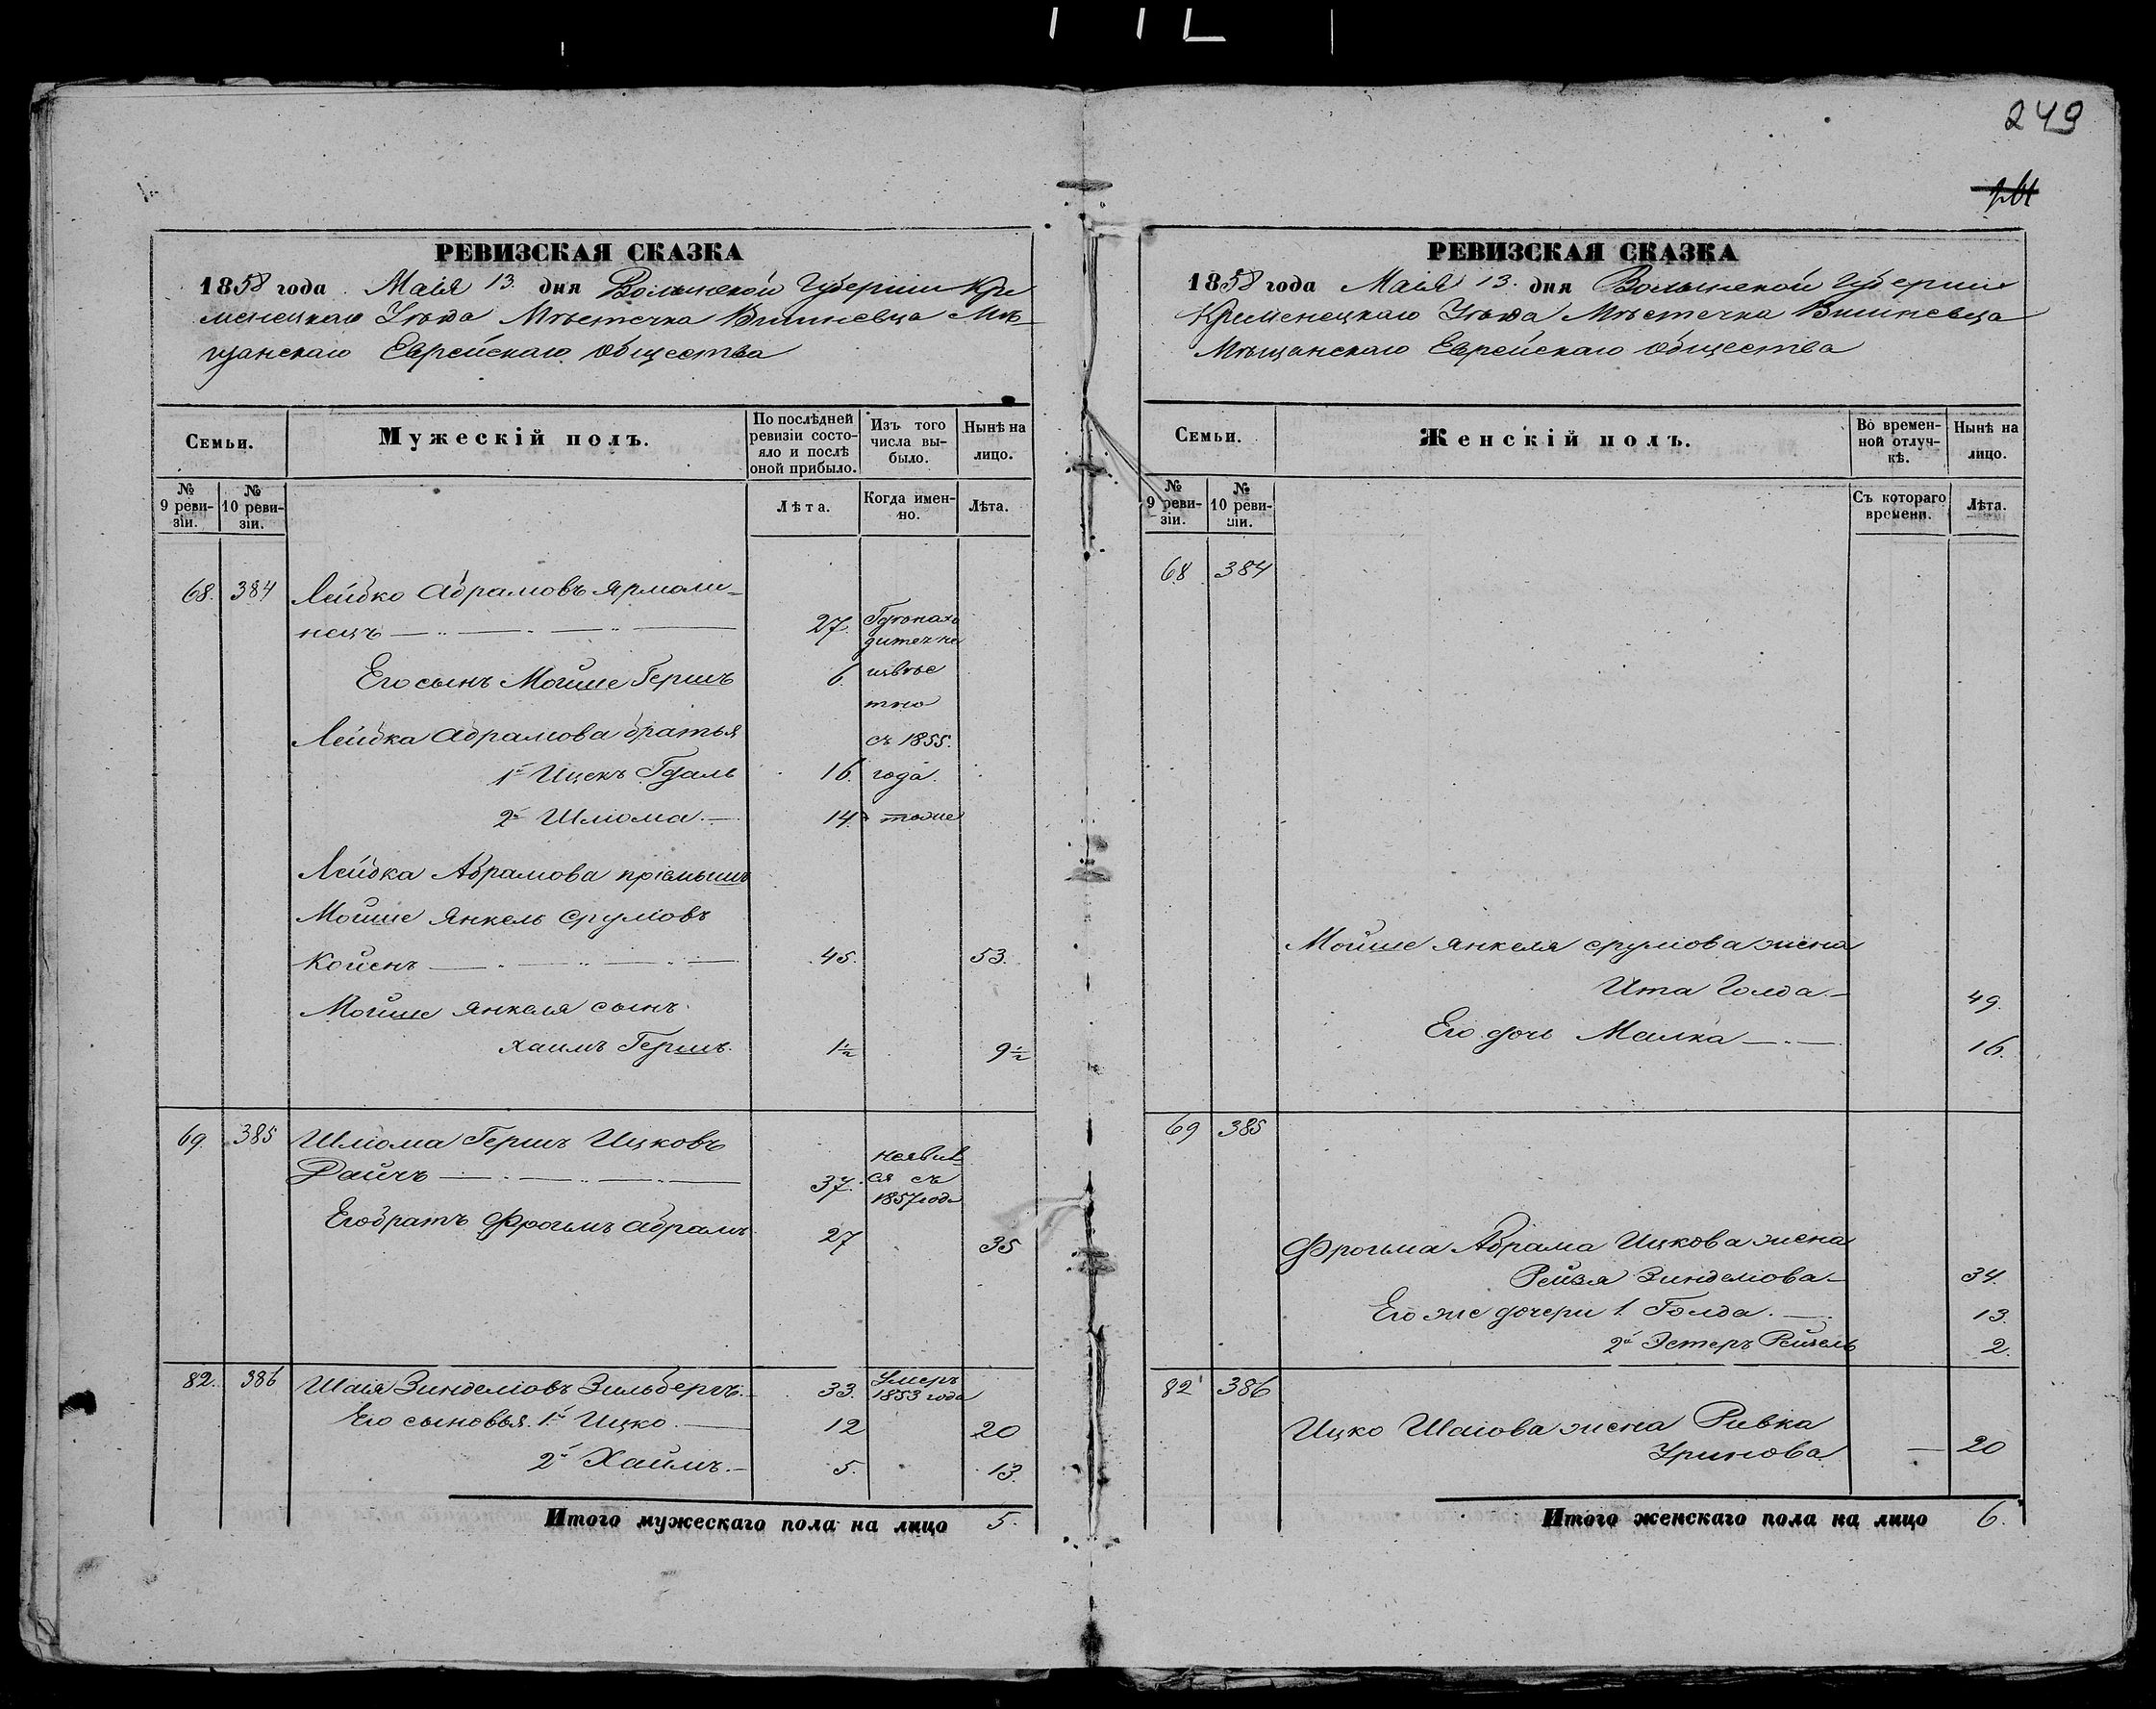 249
РЕВИЗСКАЯ СКАЗКА
1858 года Маія 13. дня Волынской Губерніи Кре
менецкаго Уѣзда Мѣстечка Вишневца Мѣ-
щанскаго Еврейскаго Общества
Семьи.
Мужескій полъ.
По послѣдней ревизіи состояло и послѣ оной прибыло.
Изъ того числа выбыло.
Нынѣ на лицо.
№ 9 ревизіи.
№ 10 ревизіи.
Лѣта.
Когда именно.
Лѣта.
68. 384 Лейбко Абрамовъ Ярмоли-
нецъ 27. Гдѣ нахо
дится не
Его сынъ Мошше Гершъ 6. извѣс
тно
Лейбка Абрамова братья съ 1855.
1й Ицекъ Гдаль 16. года.
2й Шлиома 14. тоже
Лейбка Абрамова пріемышъ
Мошше Янкель Срулiовъ
Койенъ 45. 53.
Мошше Янкеля сынъ
Хаимъ Гершъ. 1½ 9½
69. 385 Шлиома Гершъ Ицковъ
Дайчъ 37. неявил
ся съ
1857 года
Его братъ Фроимъ Абрамъ 27 35
82. 386 Шаія Зинделіовъ Зильберъ. 33. Умеръ
1853 года
Его сыновья. 1й Ицко. 12 20
2й Хаимъ. 5. 13.
Итого мужескаго пола на лицо 5.
РЕВИЗСКАЯ СКАЗКА
1858 года Маія 13. дня Волынской Губерніи
Кременецкаго Уѣзда Мѣстечка Вишневца
Мѣщанскаго Еврейскаго Общества
Семьи.
Женскій полъ.
Во временной отлучкѣ.
Нынѣ на лицо.
№ 9 ревизіи.
№ 10 ревизіи.
Съ котораго времени.
Лѣта.
68 384
Мойше Янкеля Срулiова жена
Ита Голда 49.
Его дочь Малка 16.
69 385
Фроима Абрама Ицкова жена
Рейзя Зинделіова 34.
Его же дочери 1. Голда. 13.
2я Эстеръ Рейзель 2.
82 386
Ицко Шаіова жена Ривка
Уринова 20
Итого женскаго пола на лицо 6.